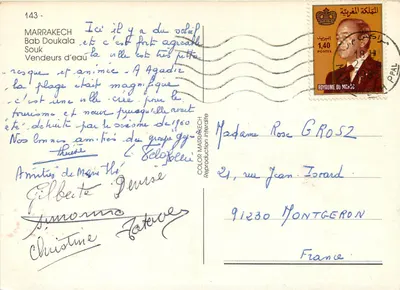 143 -
MARRAKECH
Bab Doukala
Souk
Vendeurs d'eau
Ici il y a du soleil
et c'est fort agréable
la ville est très pitto-
resque et animée. A Agadir
la plage était magnifique
c'est une ville créée pour le
tourisme et neuve puisqu'elle
détruite par le séisme de 1960
Nos bonnes amitiés du groupe
Amitiés de
Gilberte Denise
Simonne
Christine
COLOR MARRAKECH
reproduction interdite
المملكة المغربية
1,40
ROYAUME DU MAROC
Madame Rose GROSZ
21, rue Jean Isoard
91230 MONTGERON
France